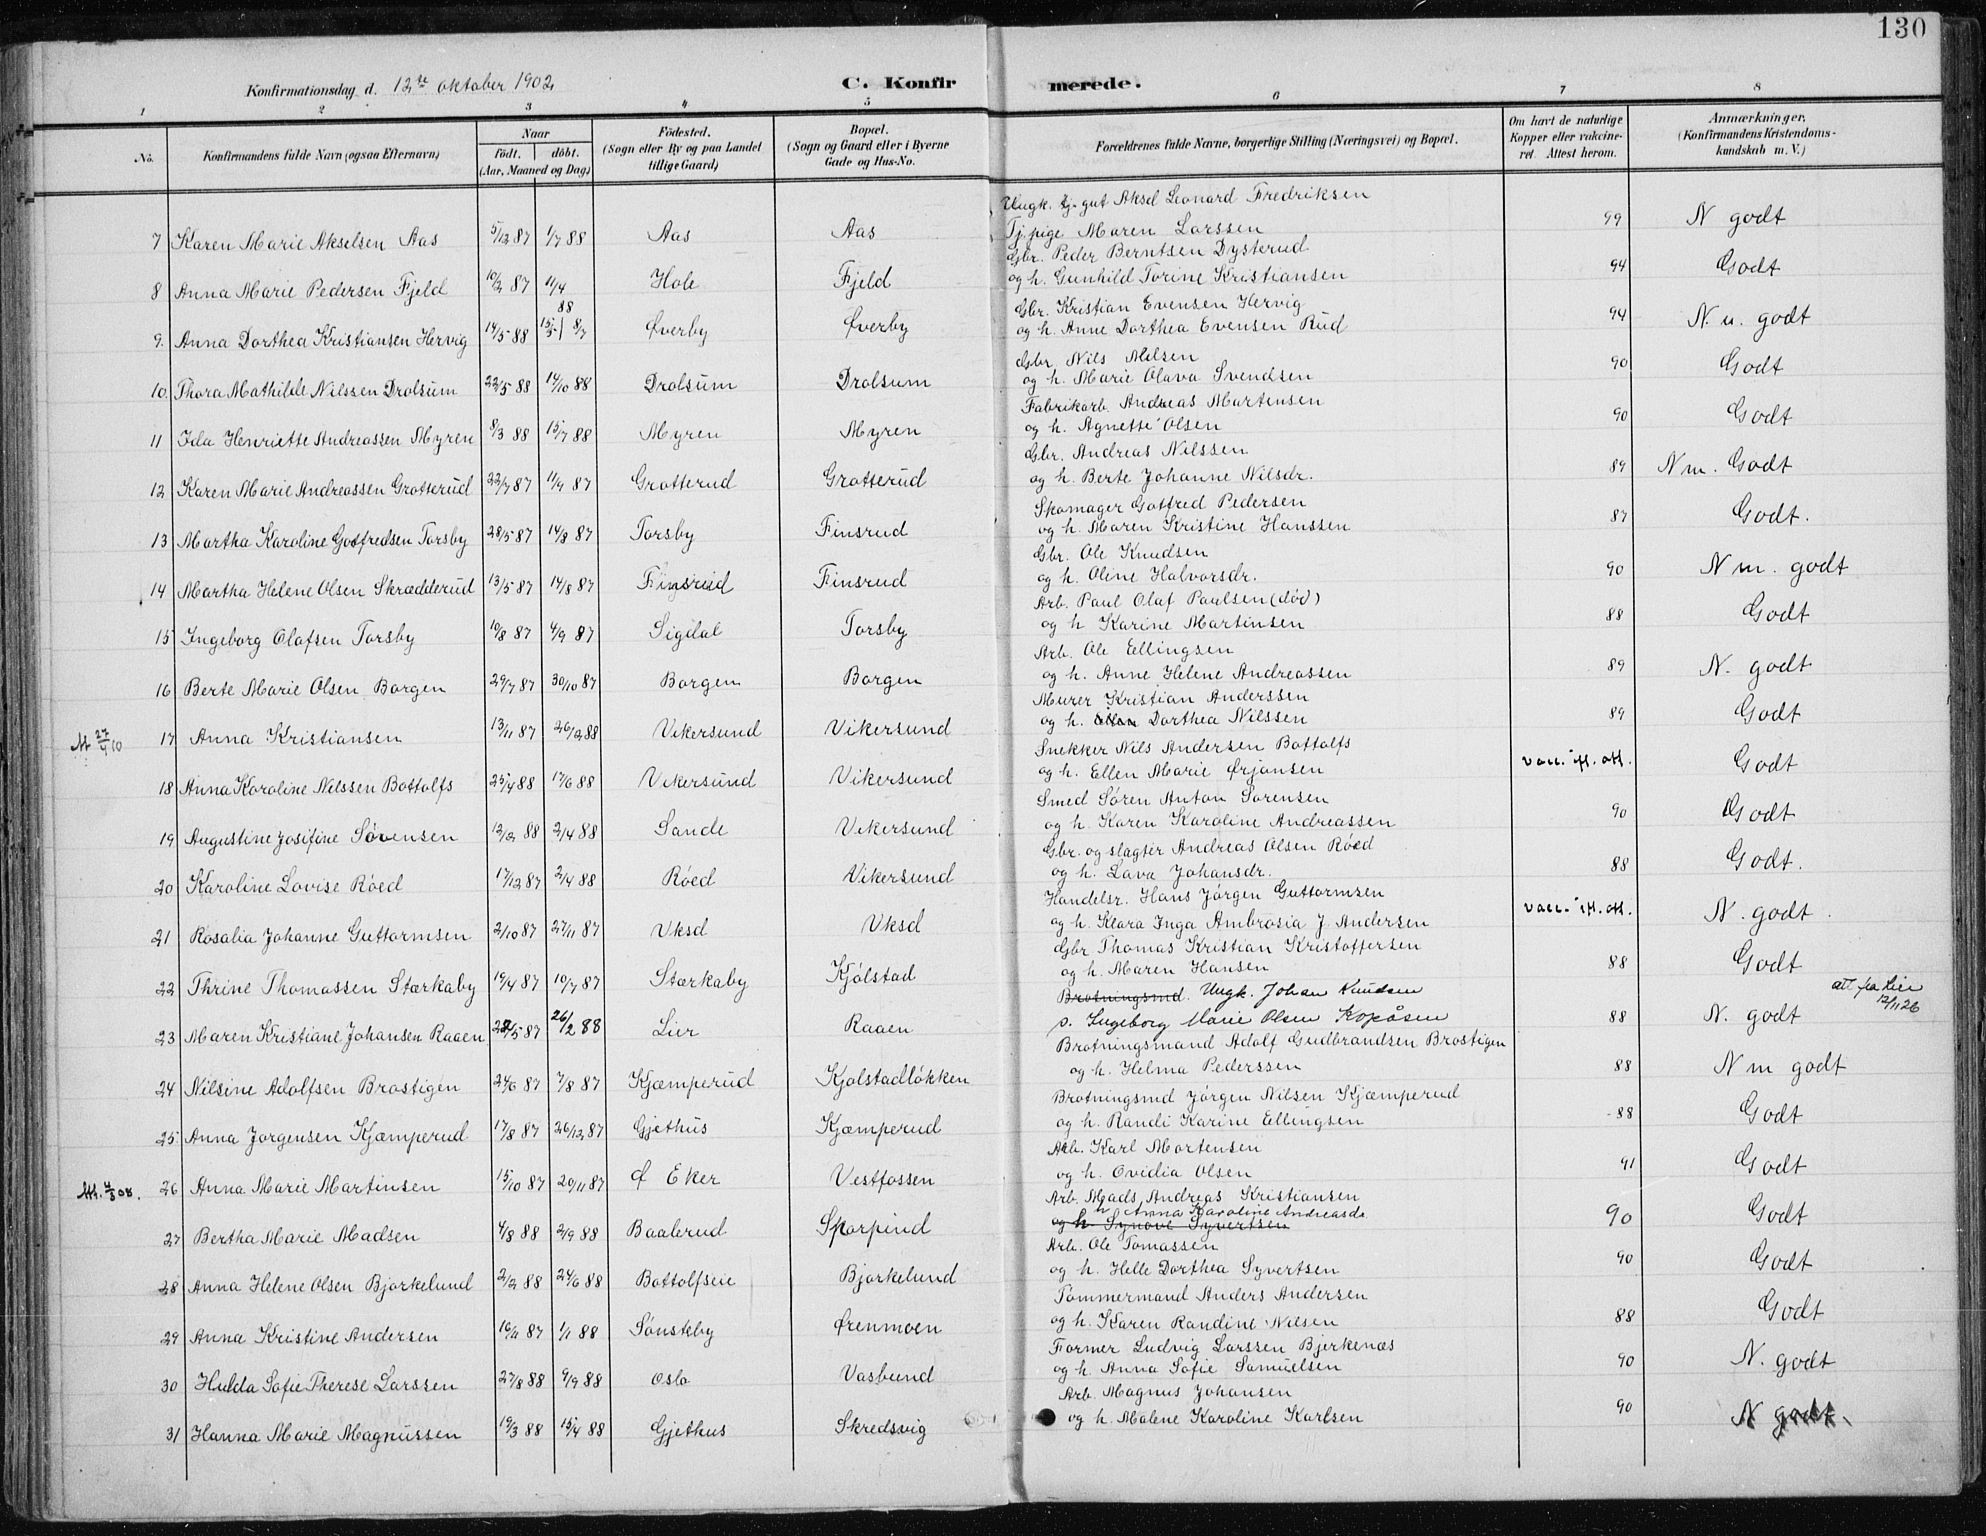 130
Konfirmationsdag d. 12te oktober 1902
C. Konfirmerede.
1 2 3 4 5 6 7 8
No. Konfirmandens fulde Navn (ogsaa Efternavn) Naar født. døbt. (Aar, Maaned og Dag) Fødested. (Sogn eller By og paa Landet tillige Gaard) Bopæl. (Sogn og Gaard eller i Byerne Gade og Hus-No. Forældrenes fulde Navne, borgerlige Stilling (Næringsvei) og Bopæl. Om havt de naturlige Kopper eller vakcineret. Attest herom. Anmærkninger. (Konfirmandens Kristendomskundskab m. V.)
Ungk. tj. gut Aksel Leonard Fredriksen
7 Karen Marie Akselsen Aas 5/12 87 1/7 88 Aas Aas Tj. pige Maren Larssen 99 N godt
Gbr. Peder Berntsen Dysterud
8 Anna Marie Pedersen Fjeld 10/2 87 11/4 88 Hole Fjeld og h. Gunhild Torine Kristiansen 94 Godt
Gbr. Kristian Evensen Hervig
9. Anna Dorthea Kristiansen Hervig 14/5 88 15/5 | 8/7 Øverby Øverby og h. Anne Dorthea Evensen Rud 94 N. u. godt
Gbr. Nils Nilsen
10. Thora Mathilde Nilssen Drolsum 22/5 88 14/10 88 Drolsum Drolsum og h. Marie Olava Svendsen 90 Godt
Fabrikarb. Andreas Martensen
11 Ida Henriette Andreassen Myren 8/3 88 15/7 88 Myren Myren og h. Agnette Olsen 90 Godt
Gbr. Andreas Nilssen
12 Karen Marie Andreassen Grotterud 22/7 87 11/9 87 Grotterud Grotterud og h. Berte Johanne Nilsdr. 89 N m. Godt
Skomager Gotfred Pedersen
13 Martha Karoline Gotfredsen Torsby 28/5 87 14/8 87 Torsby Finsrud og h. Maren Kristine Hanssen 87 Godt.
Gbr. Ole Knudsen
14 Martha Helene Olsen Skrædderud 13/5 87 14/8 87 Finsrud Finsrud og h. Oline Halvorsdr. 90 N m. godt
Arb. Paul Olaf Paulsen (død)
15 Ingeborg Olafsen Torsby 10/8 87 4/9 87 Sigdal Torsby og h Karine Martinsen 88 Godt
Arb. Ole Ellingsen
16 Berte Marie Olsen Borgen 29/7 87 30/10 87 Borgen Borgen og h. Anne Helene Andreassen 89 N. godt
Murer Kristian Anderssen
Att 27/4 10 17 Anna Kristiansen 13/11 87 26/2 88 Vikersund Vikersund og h. Dorthea Nilssen 89 Godt
Snekker Nils Andersen Bottolfs
18 Anna Karoline Nilssen Bottolfs 25/4 88 17/6 88 Vikersund Vikersund og h. Ellen Marie Ørjansen vacc. if. att. Godt
Smed Søren Anton Sørensen
19 Augustine Josifine Sørensen 12/2 88 2/4 88 Sande Vikersund og h. Karen Karoline Andreassen 90 Godt
Gbr. og slagter Andreas Olsen Røed
20 Karoline Lovise Røed 17/12 87 2/4 88 Røed Vikersund og h. Lava Johansdr. 88 Godt.
Handelsr. Hans Jørgen Guttormsen
21 Rosalia Johanne Guttormsen 2/10 87 27/11 87 Vksd Vksd og h. Klara Inga Ambrosia J. Andersen vacc. if. att. N. godt.
Gbr Thomas Kristian Kristoffersen
22 Thrine Thomassen Stærkaby 19/4 87 10/7 87 Stærkaby Kjølstad og h. Maren Hansen 88 Godt
Brotningsmd. Ungk. Johan Knudsen att fra Lier 12/11 26
23 Maren Kristiane Johansen Raaen 22/5 87 26/2 88 Lier Raaen p. Ingeborg Marie Olsen Kopåsen 88 N. godt
Brotningsmand Adolf Gudbrandsen Brostigen
24 Nilsine Adolfsen Brostigen 24/6 87 7/8 87 Kjæmperud Kjølstadløkken og h. Helma Pederssen 88 N m godt
Brotningsmd Jørgen Nilsen Kjæmperud
25 Anna Jørgensen Kjæmperud 17/8 87 26/12 87 Gjethus Kjæmperud og h. Randi Karine Ellingsen 88 Godt
Arb. Karl Mortensen
Att. 4/5 08. 26 Anna Marie Martinsen 15/10 87 20/11 87 Ø Eker Vestfossen og h. Ovidia Olsen 91 Godt
Arb. Mads Andreas Kristiansen
h Anna Karoline Andreasdr.
27 Bertha Marie Madsen 4/8 88 2/9 88 Baalerud Sporpind og h. Synøve Syvertsen 90 Godt
Arb. Ole Tomassen
28 Anna Helene Olsen Bjorkelund 2/2 88 24/6 88 Bottolfseie Bjorkelund og h. Helle Dorthea Syvertsen 90 Godt
Tømmermand Anders Andersen
29 Anna Kristine Andersen 16/11 87 1/1 88 Sønsteby Ørenmoen og h. Karen Randine Nilsen 88 Godt
Former Ludvig Larssen Bjerkenæs
30 Hulda Sofie Therese Larssen 27/8 88 9/9 88 Oslo Vasbund og h. Anna Sofie Samuelsen 90 N. godt
Arb. Magnus Johansen
31 Hanna Marie Magnussen 19/3 88 15/4 88 Gjethus Skredsvig og h. Malene Karoline Karlsen 90 N godt.